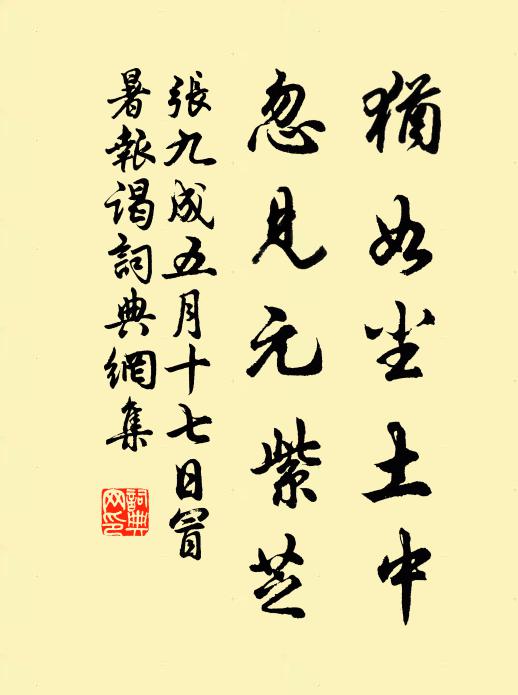 猶如尘土中
忽見元紫芝
張九成五月十七日冒
暑報謁詞典網集
詞典
网印